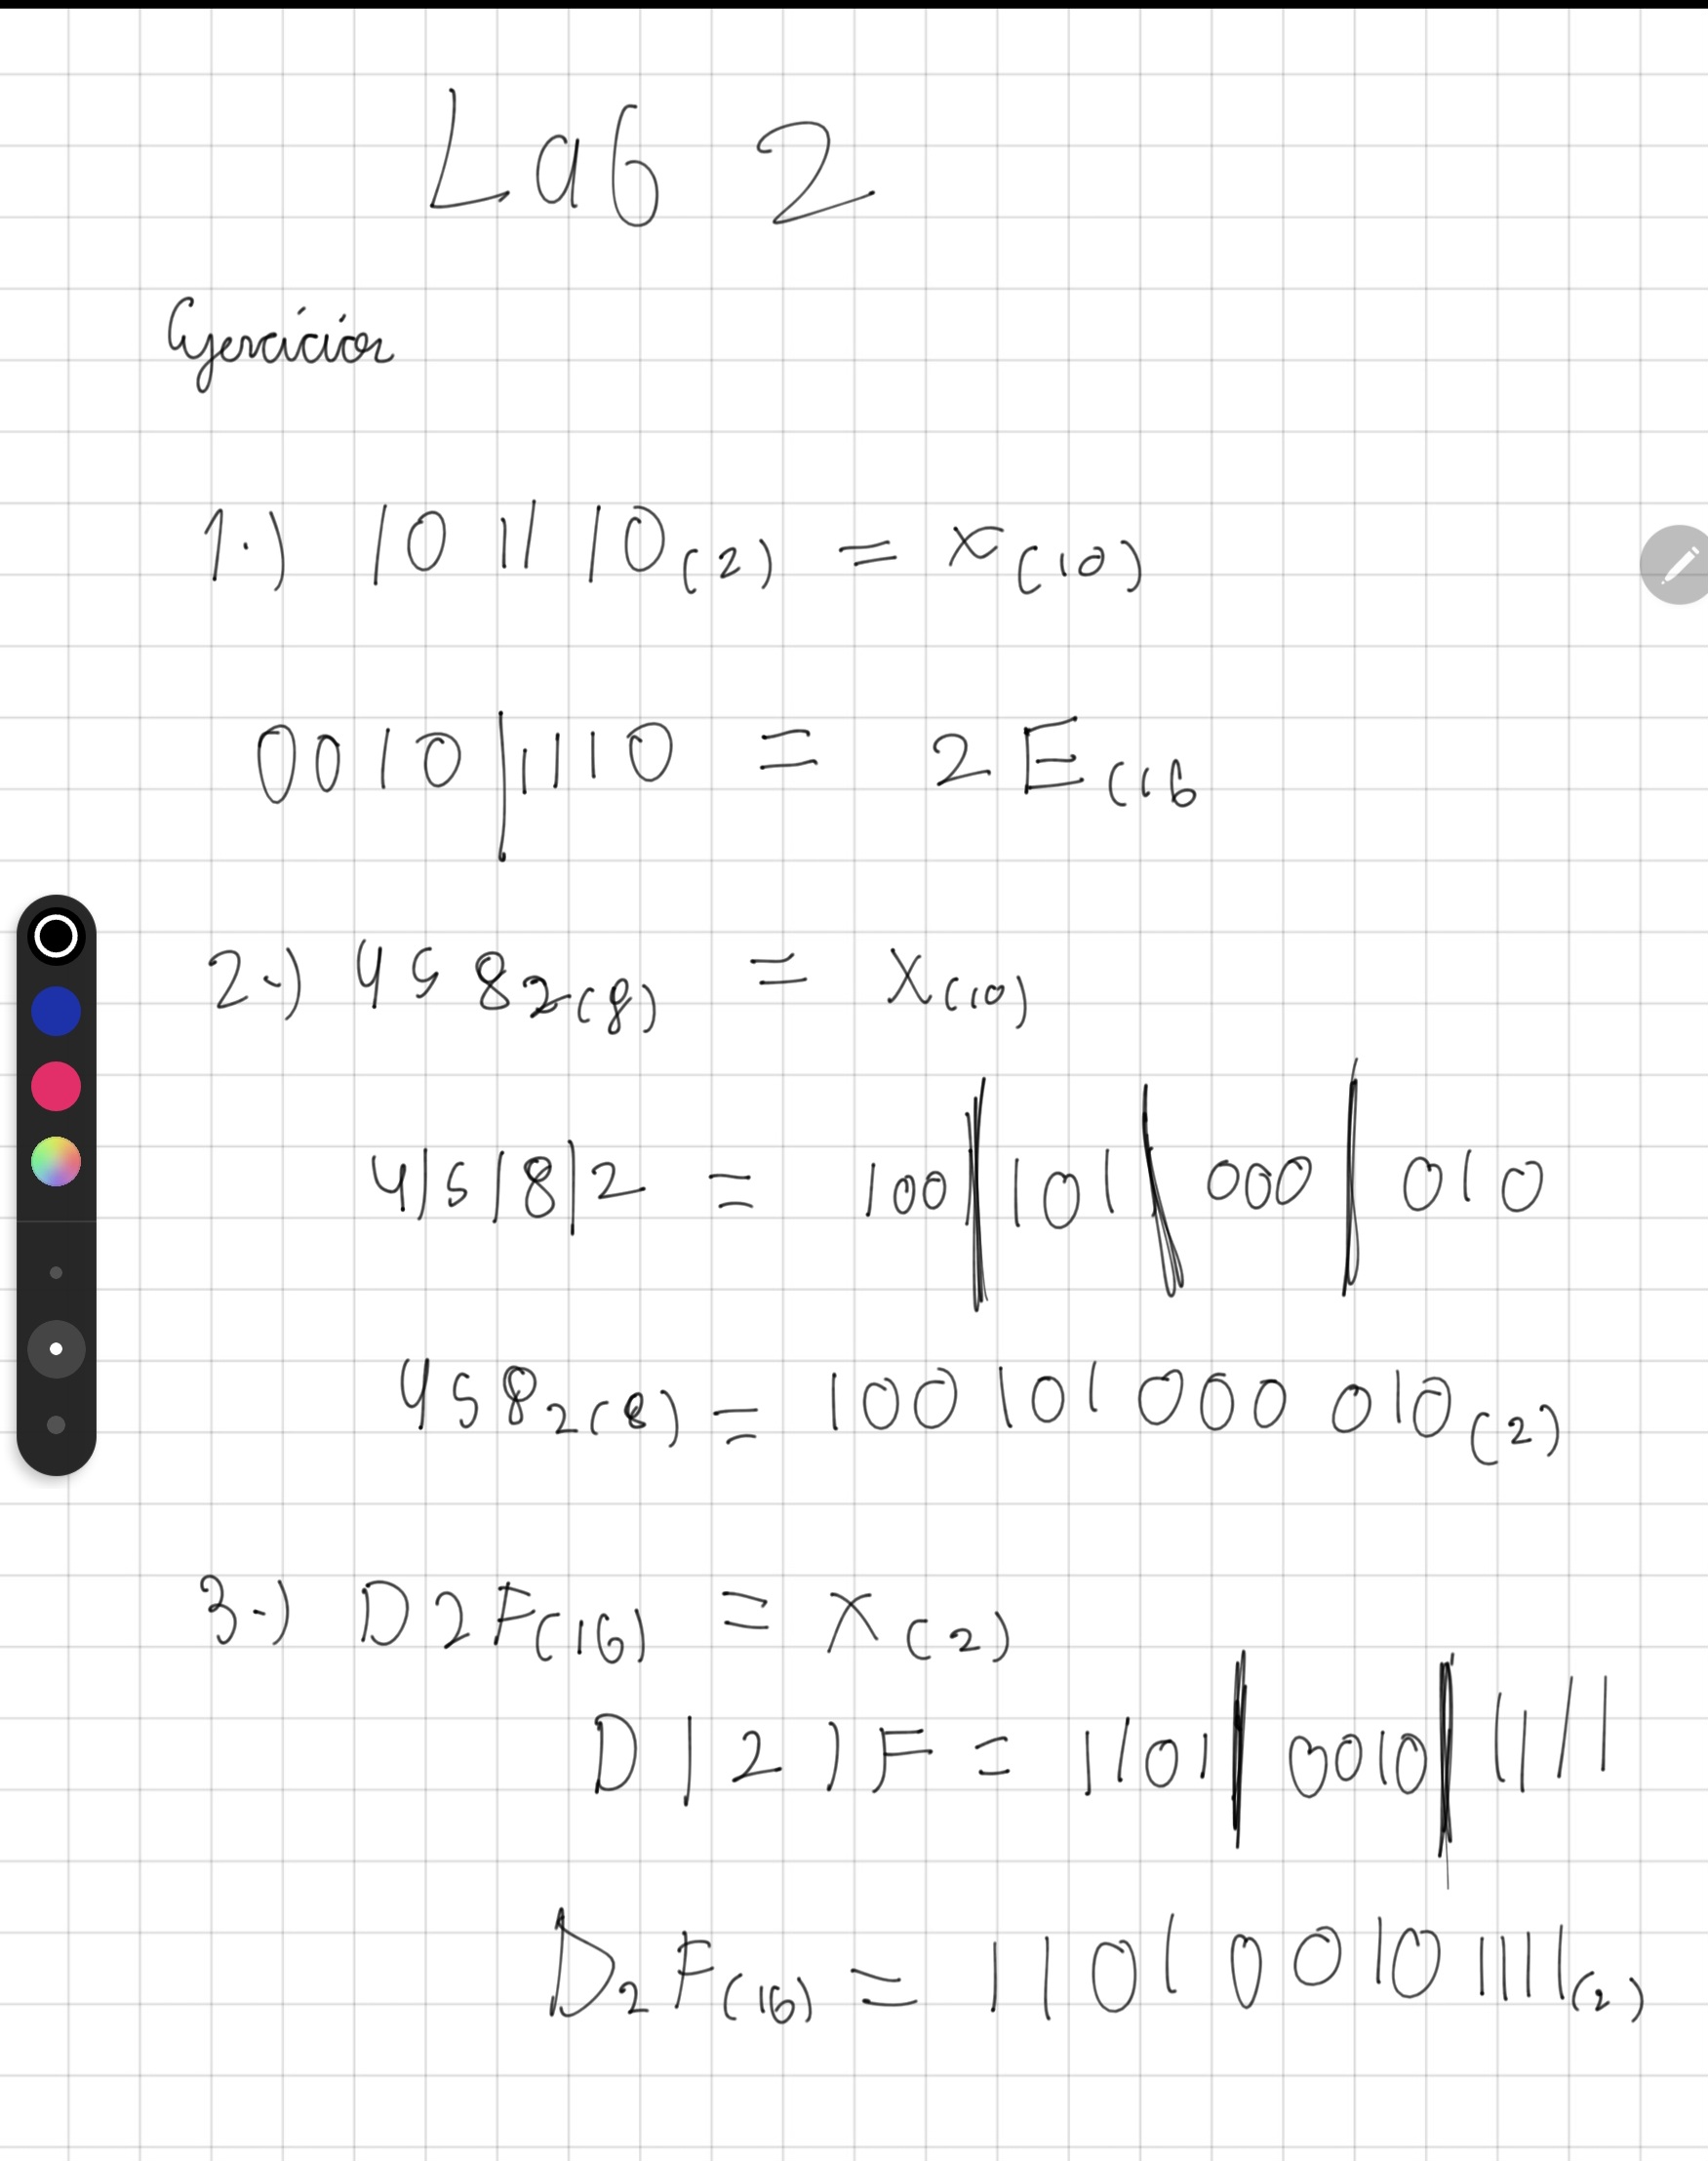 Lab 2
Ejercicios
1.) 101110(2) = x(10)
0010|1110 = 2E(16
2.) 4582(8) = x(10)
4|5|8|2 = 100|101|000|010
4582(8) = 100101000010(2)
3.) D2F(16) = x(2)
D|2|F = 1101|0010|1111
D2F(16) = 110100101111(2)